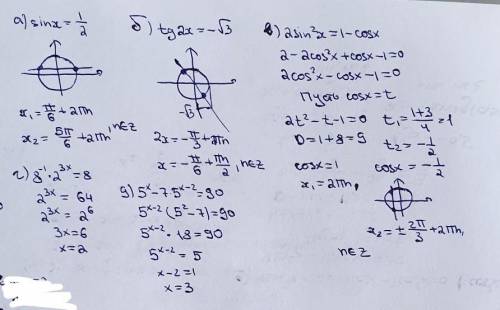 а) sinx = 1/2
x₁ = π/6 + 2πn
x₂ = 5π/6 + 2πn, n∈Z
б) tg2x = -√3
-√3
2x = -π/3 + πn
x = -π/6 + πn/2, n∈Z
в) 2sin²x = 1 - cosx
2 - 2cos²x + cosx - 1 = 0
2cos²x - cosx - 1 = 0
Пусть cosx = t
2t² - t - 1 = 0
D = 1 + 8 = 9
t₁ = (1+3)/4 = 1
t₂ = -1/2
cosx = 1
x₁ = 2πn,
cosx = -1/2
x₂ = ± 2π/3 + 2πn,
n∈Z
г) 8⁻¹ · 2³ˣ = 8
2³ˣ = 64
2³ˣ = 2⁶
3x = 6
x = 2
д) 5ˣ - 7·5ˣ⁻² = 90
5ˣ⁻² (5² - 7) = 90
5ˣ⁻² · 18 = 90
5ˣ⁻² = 5
x - 2 = 1
x = 3